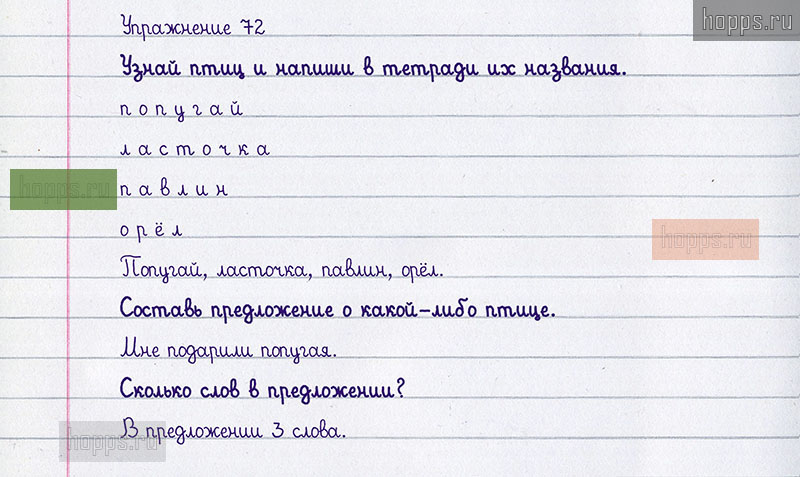 hopps.ru
Упражнение 72
Узнай птиц и напиши в тетради их названия.
п о п у г а й
л а с т о ч к а
hopps.ru
п а в л и н
о р ё л
hopps.ru
Попугай, ласточка, павлин, орёл.
Составь предложение о какой-либо птице.
Мне подарили попугая.
Сколько слов в предложении?
В предложении 3 слова.
hopps.ru